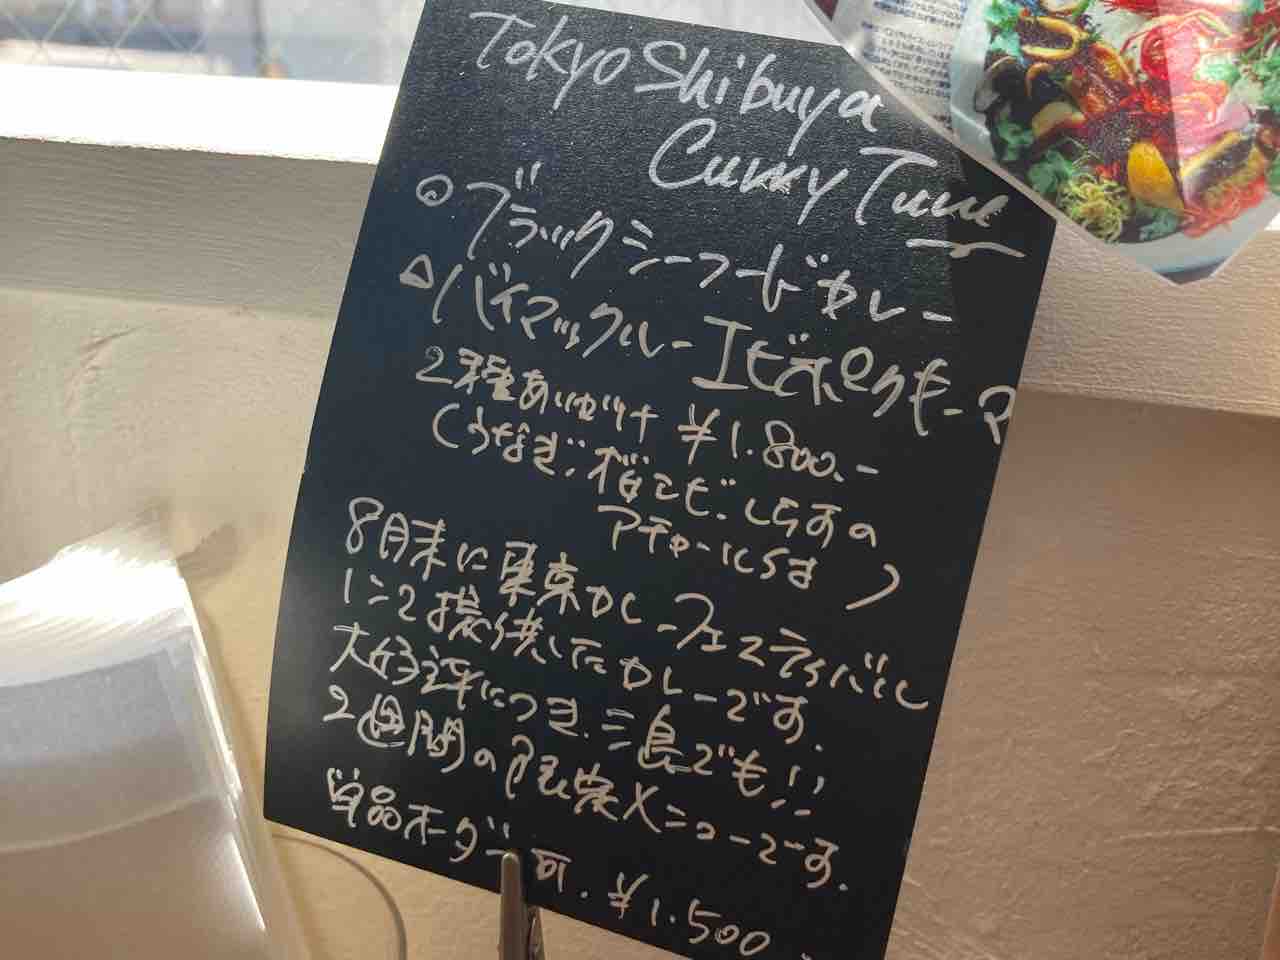 Tokyo Shibuya
Curry Tune
◎ブラックシーフードカレー
△バイマックルーエビポークキーマ
2種あいがけ ¥1.800.-
(うなぎ、桜エビ、しらすの
アチャールには)
8月末に東京カレーフェスティバル
でお披露したカレーです。
大好評につき、三島でも!!
2週間の限定メニューです。
単品オーダー可. ¥1.500